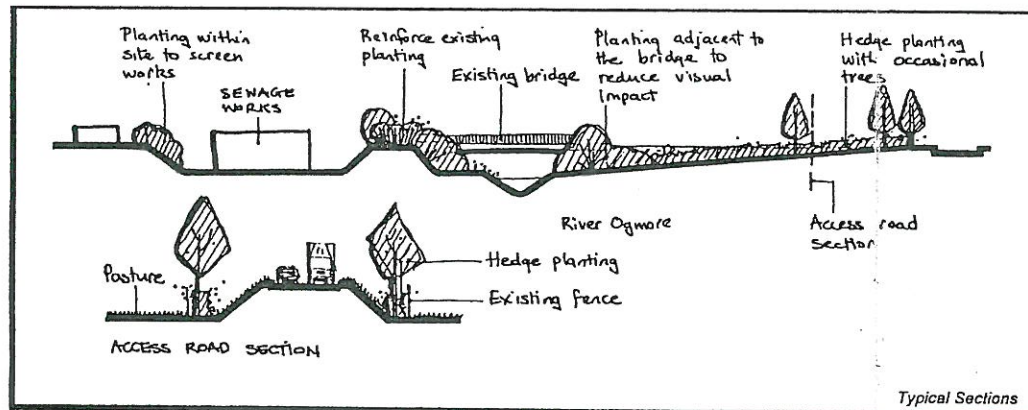 Planting within
site to screen
works
SEWAGE
WORKS
Reinforce existing
planting
Existing bridge
Planting adjacent to
the bridge to
reduce visual
impact
Hedge planting
with occasional
trees
River Ogmore
Access road
section
Pasture
Hedge planting
Existing fence
ACCESS ROAD SECTION
Typical Sections